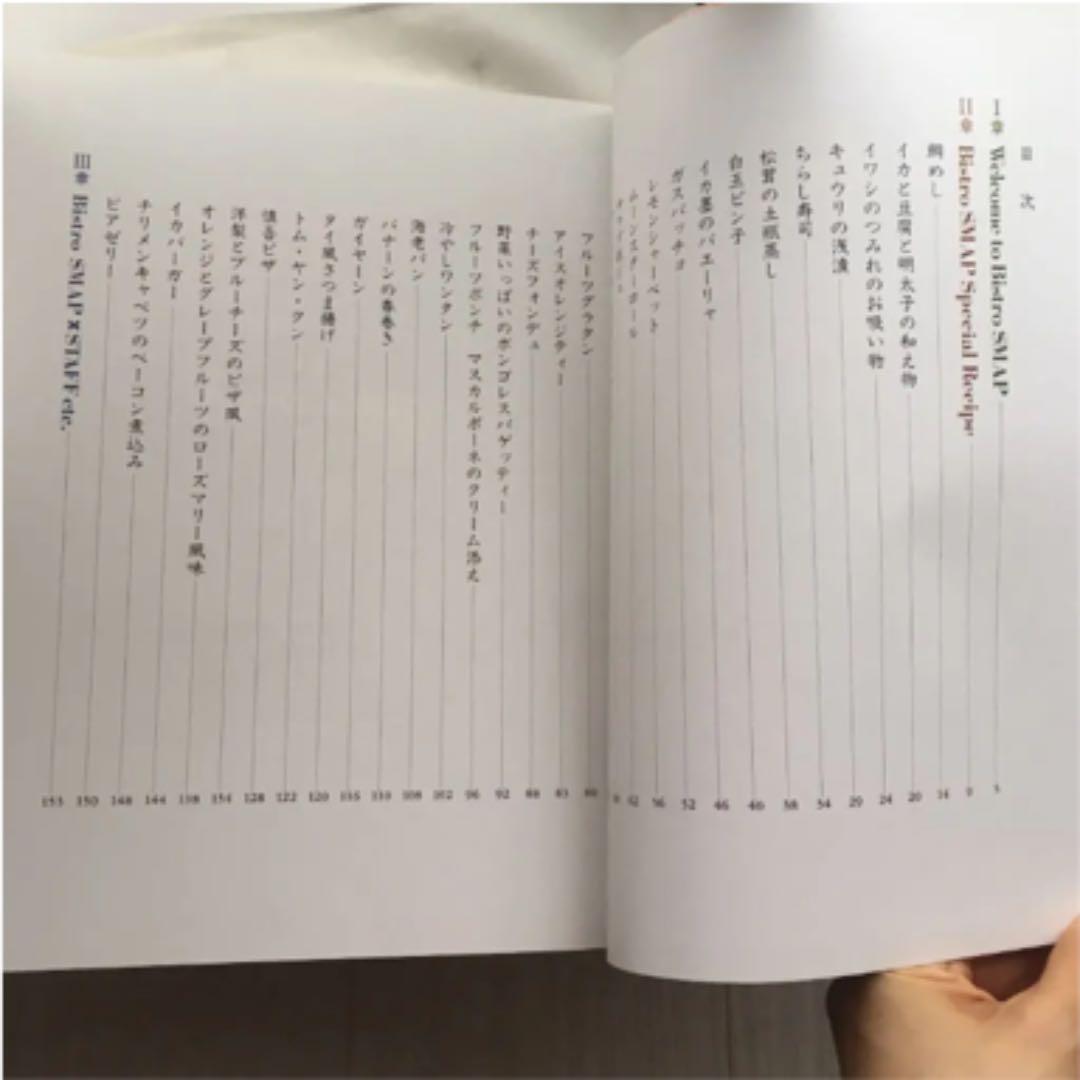 目次
I章 Welcome to Bistro SMAP 5
II章 Bistro SMAP Special Recipe 9
鯛めし 14
イカと豆腐と明太子の和え物 20
イワシのつみれのお吸い物 24
キュウリの浅漬 29
ちらし寿司 34
松茸の土瓶蒸し 38
白玉ピン子 40
イカ墨のパエーリャ 46
ガスパッチョ 52
レモンシャーベット 56
62
フルーツグラタン
アイスオレンジティー 83
チーズフォンデュ 88
野菜いっぱいのボンゴレスパゲッティー 92
フルーツポンチ マスカルポーネのクリーム添え 96
冷やしワンタン 102
海老パン 108
バナーンの春巻き 110
ガイヤーン 116
タイ風さつま揚げ 120
トム・ヤン・クン 122
慎吾ピザ 128
洋梨とブルーチーズのピザ風 134
オレンジとグレープフルーツのローズマリー風味 138
イカバーガー 144
チリメンキャベツのベーコン煮込み 148
ビアゼリー 150
III章 Bistro SMAP×STAFF etc. 153